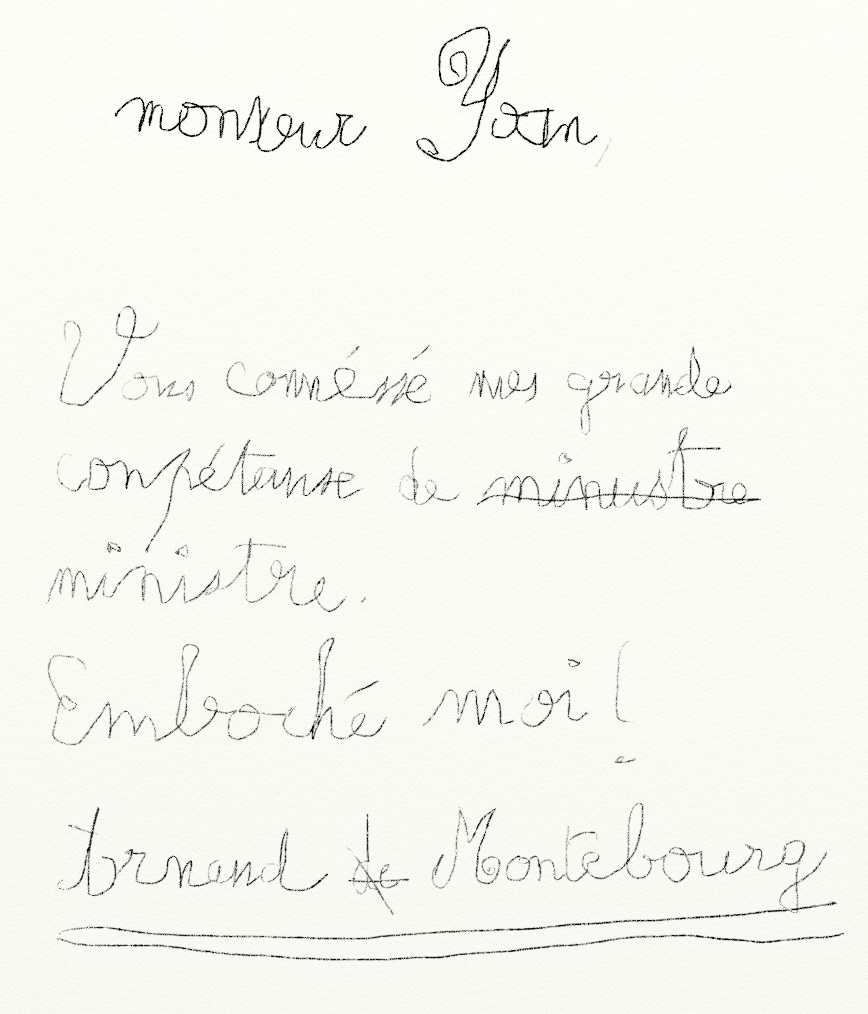 monsieur Yoan,
Vous connéssé mes grande
conpétanse de minustre
ministre.
Emboché moi !
Arnaud de Montebourg